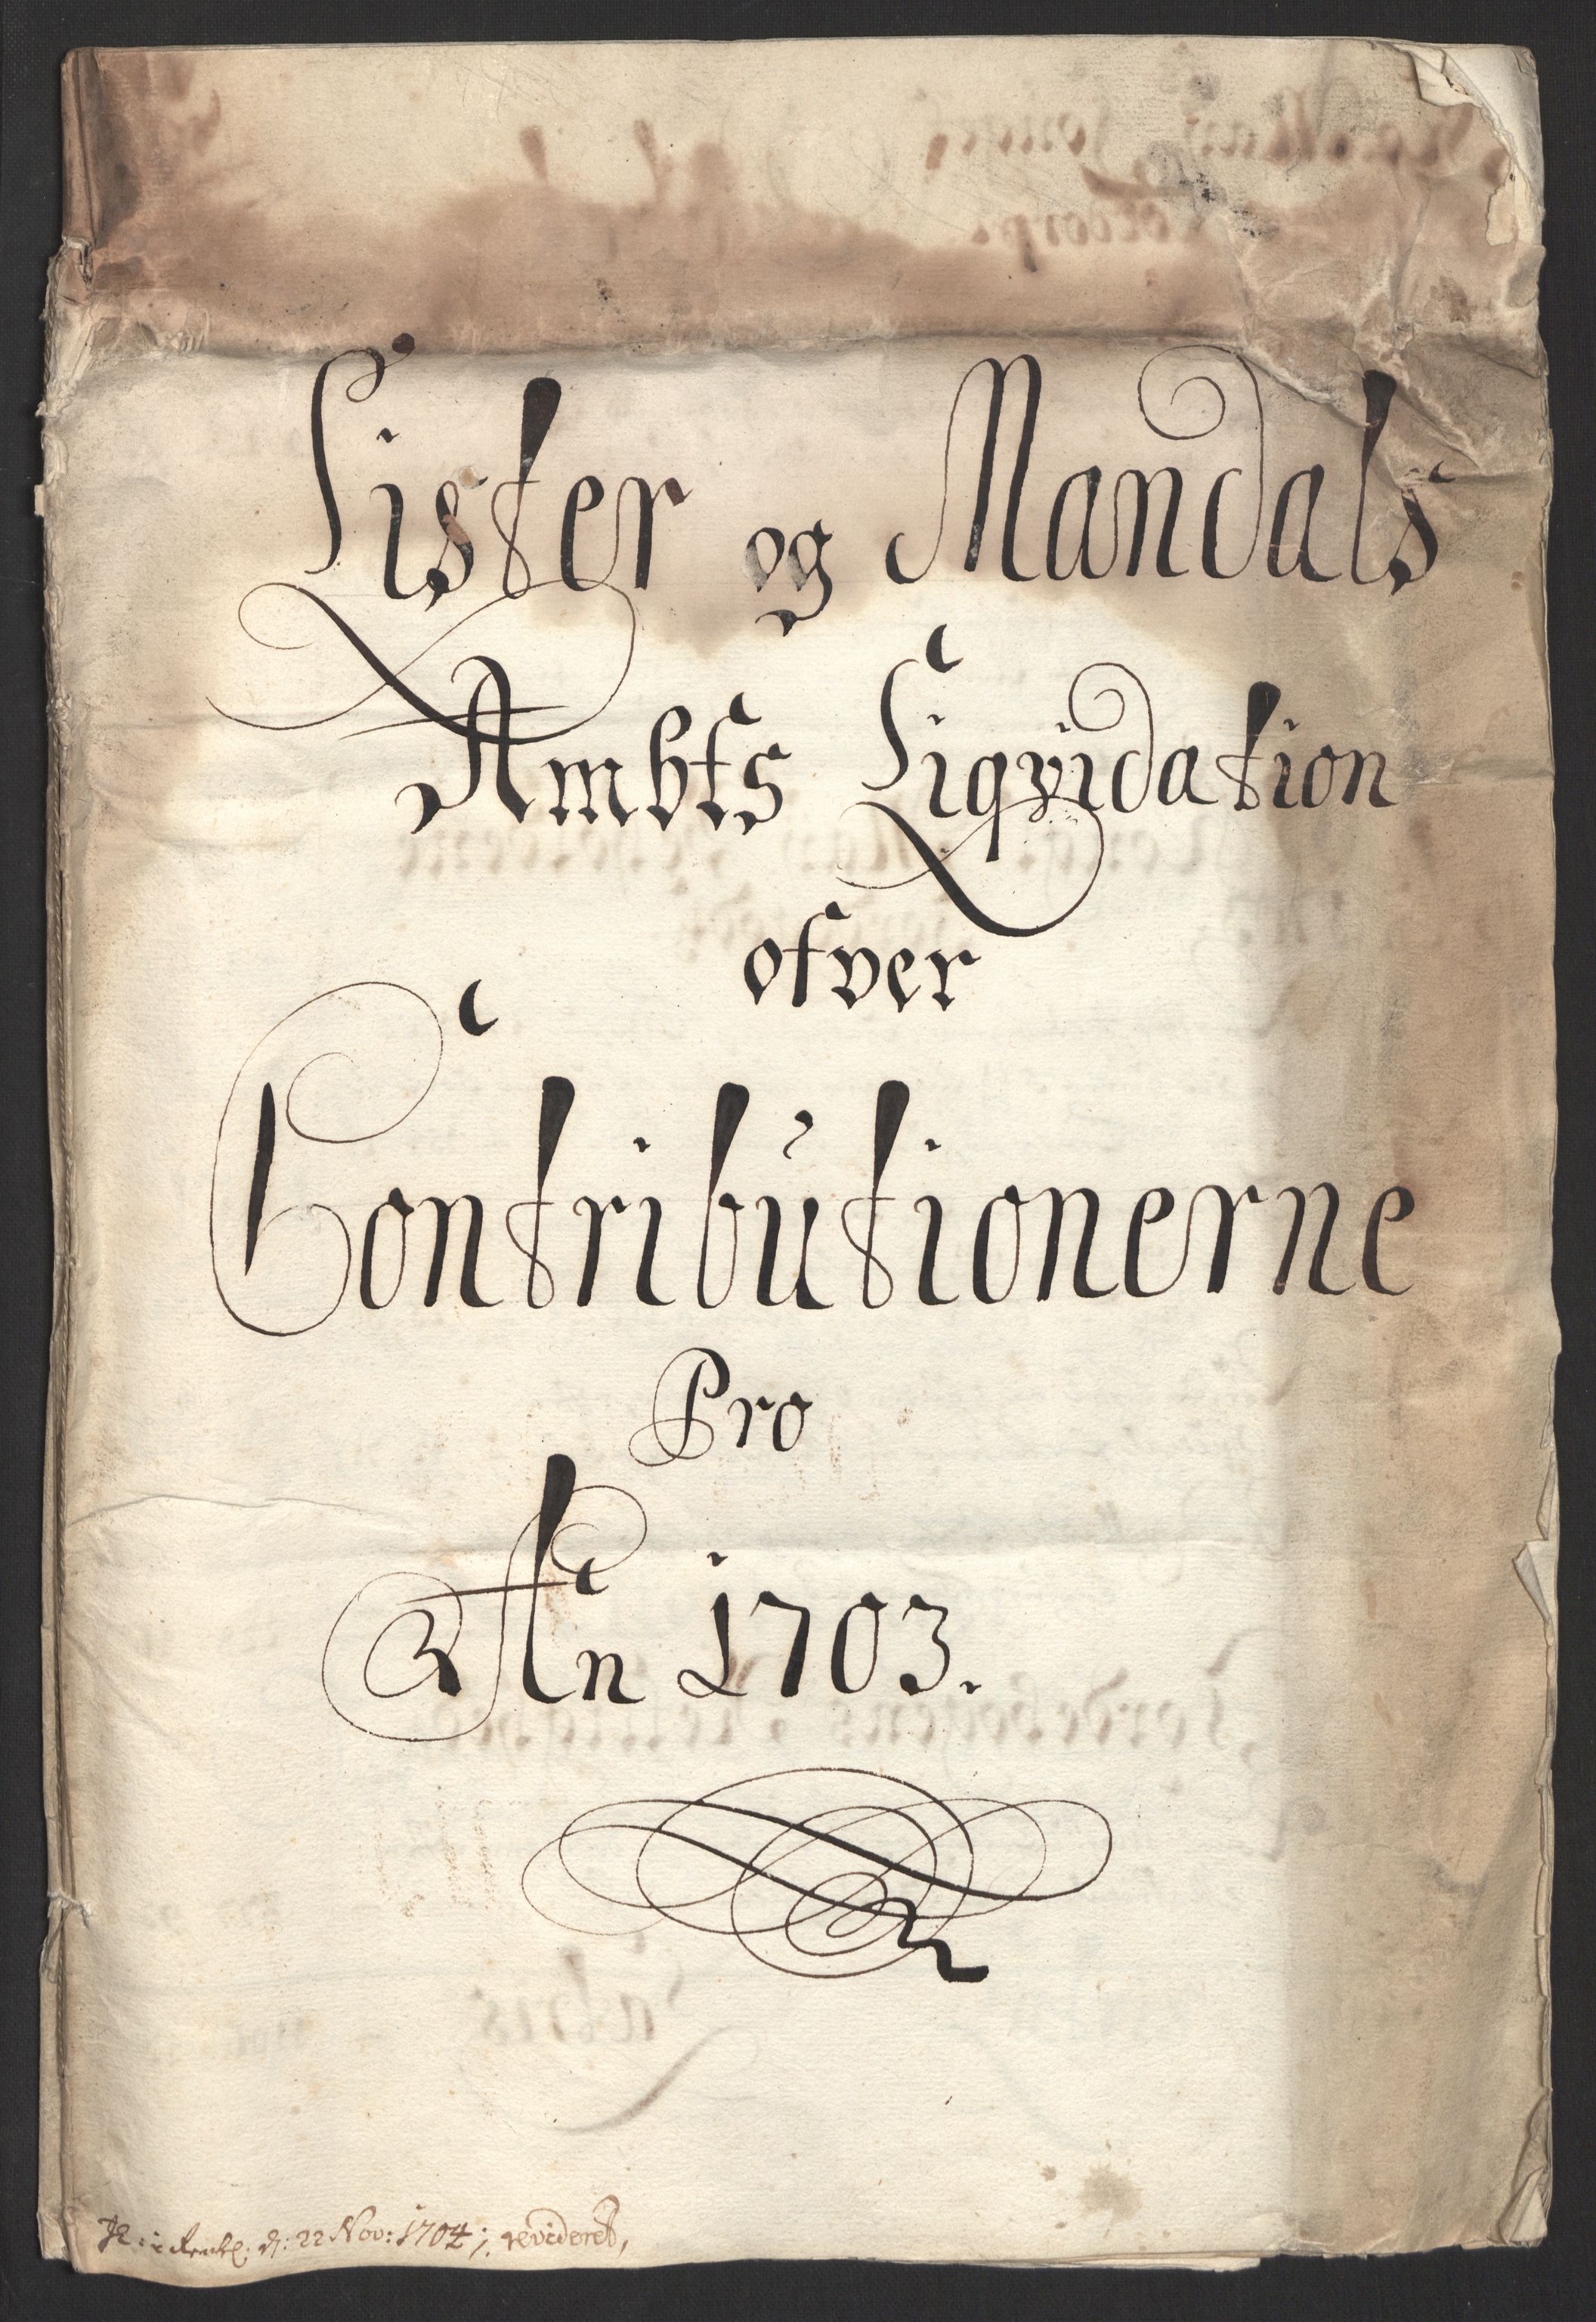 Lister og Mandals
Ambts Liqvidation
ofver
Contributionerne
Pro
An 1703.
d: 22 Nov: 1704; revideret,